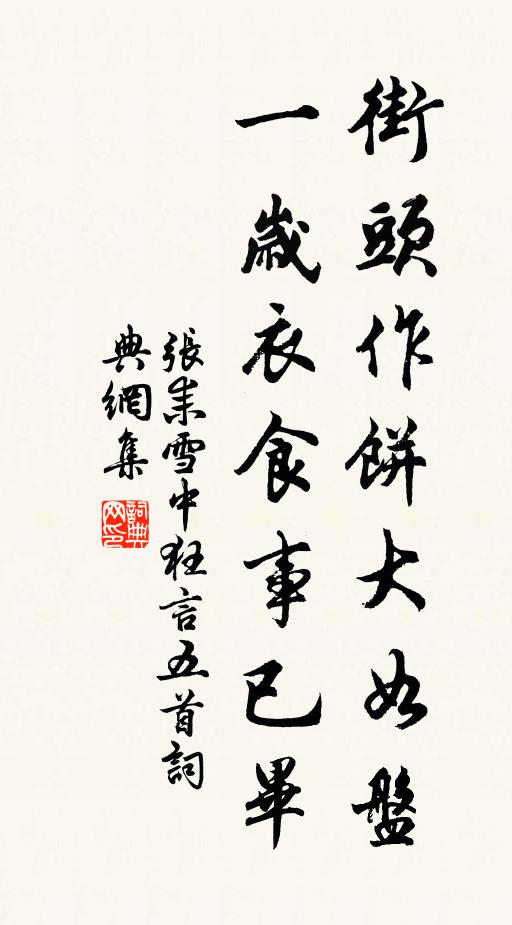 街頭作餅大如盤
一歲衣食事已畢
張耒雪中狂言五首詞
典網集
詞典網印